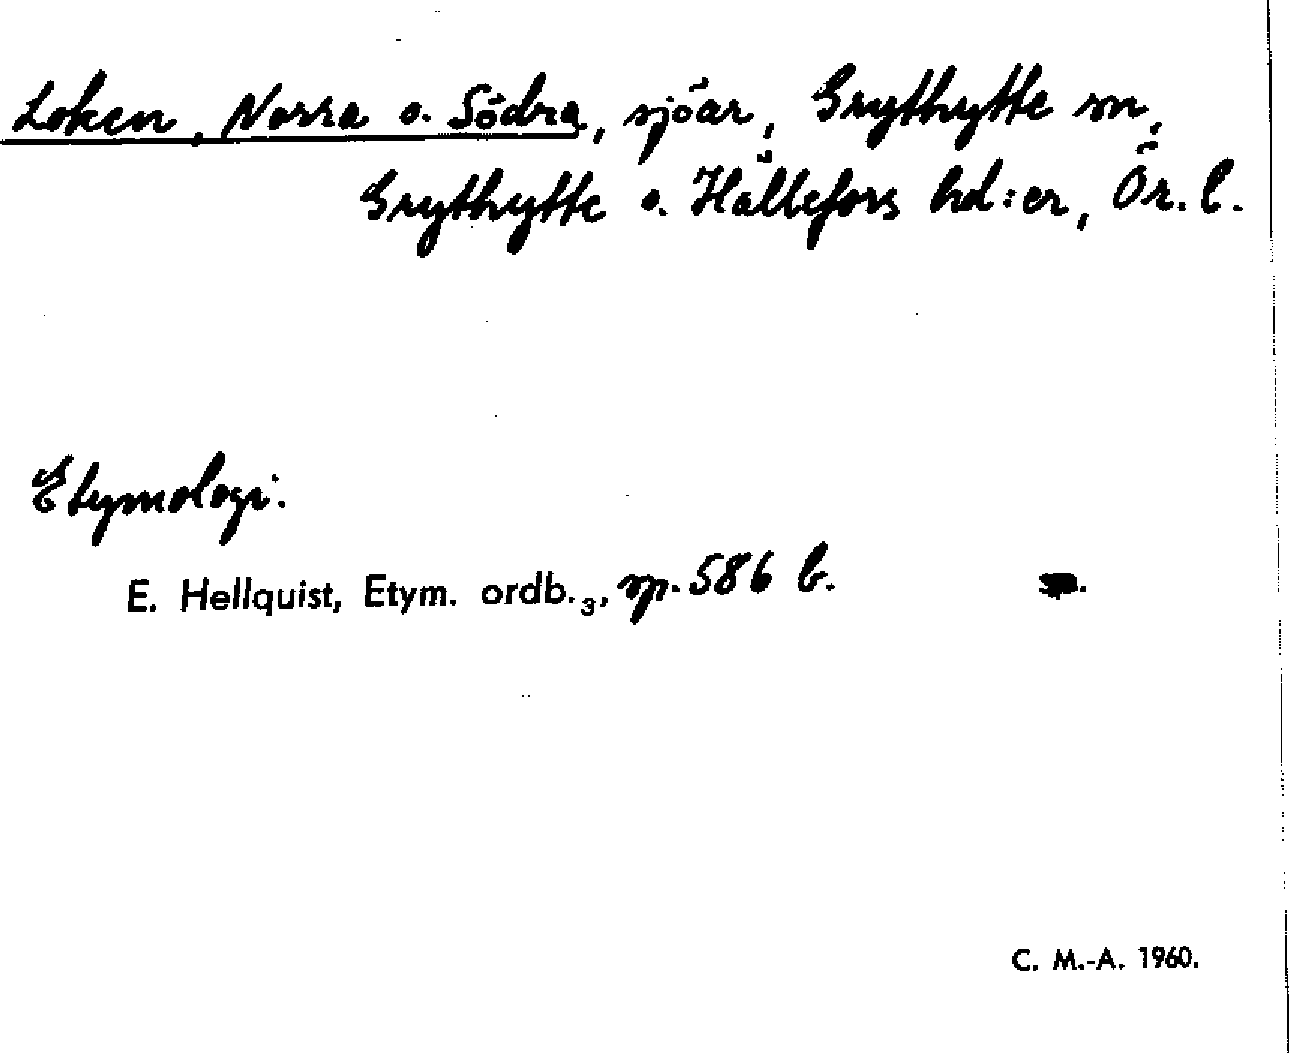 Loken, Norra o. Södra, sjöar, Grythytte sn,
Grythytte o. Hällefors hd:er, Ör. l.
Etymologi.
E. Hellquist, Etym. ordb.₃, sp. 586 b.
C. M.-A. 1960.